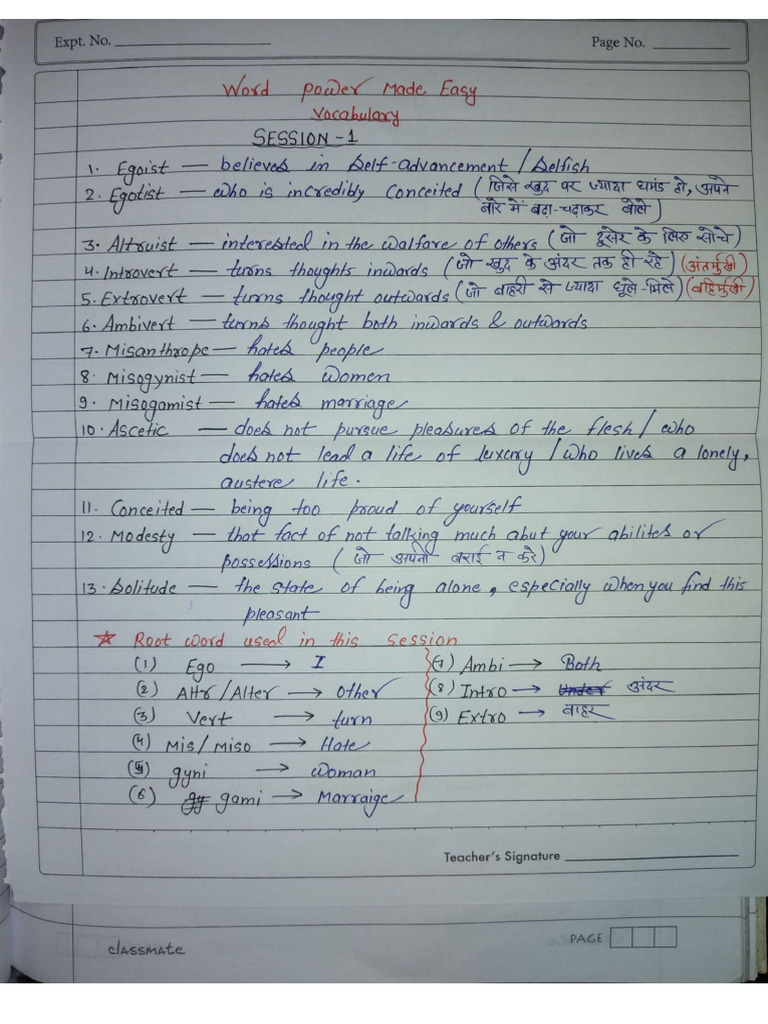 Expt. No.
Page No.
Word Power Made Easy
Vocabulary
SESSION-1
1. Egoist — believes in self-advancement / selfish
2. Egotist — who is incredibly conceited (जिसे खुद पर ज्यादा घमंड हो, अपने
बारे में बढ़ा-चढ़ाकर बोले)
3. Altruist — interested in the walfare of others (जो दूसरे के लिए सोचे)
4. Introvert — turns thoughts inwards (जो खुद के अंदर तक ही रहे) (अंतर्मुखी)
5. Extrovert — turns thought outwards (जो बाहरी से ज्यादा घूले-मिले) (बहिर्मुखी)
6. Ambivert — turns thought both inwards & outwards
7. Misanthrope — hates people
8. Misogynist — hates women
9. Misogamist — hates marriage
10. Ascetic — does not pursue pleasures of the flesh / who
does not lead a life of luxury / who lives a lonely,
austere life.
11. Conceited — being too proud of yourself
12. Modesty — that fact of not talking much abut your abilites or
possessions (जो अपनी बराई न करे)
13. Solitude — the state of being alone, especially when you find this
pleasant
☆ Root word used in this session
(1) Ego → I
(2) Altr/Alter → Other
(3) Vert → turn
(4) Mis/Miso → Hate
(5) gyni → woman
(6) gami → Marraige
(7) Ambi → Both
(8) Intro → अंदर
(9) Extro → बाहर
Teacher's Signature
classmate
PAGE